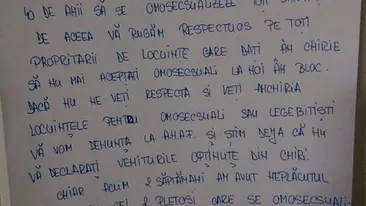 40 DE AHII SĂ SE OMOSECSUALIZEZE TOȚI
DE ACEEA VĂ RUGĂM RESPECTUOS PE TOȚI
PROPRITARII DE LOCUINȚE CARE DAȚI ÂH CHIRIE
SĂ HU MAI ACEPTAȚI OMOSECSUALI LA HOI ÂH BLOC.
DACĂ HU HE VEȚI RESPECTA ȘI VEȚI ÂHCHIRIA
LOCUIHȚELE PEHTRU OMOSECSUALI SAU LEGEBITIȘTI
VĂ VOM DEHUHȚA LA A.H.A.F. ȘI ȘTIM DEJA CĂ HU
VĂ DECLARAȚI VEHITURILE OPȚIHUTE DIN CHIRI.
CHIAR ACUM 2 SĂPTĂMÂHI AM AVUT HEPLĂCUTUL
CEI 2 PLETOȘI CARE SE OMOSECSUALI